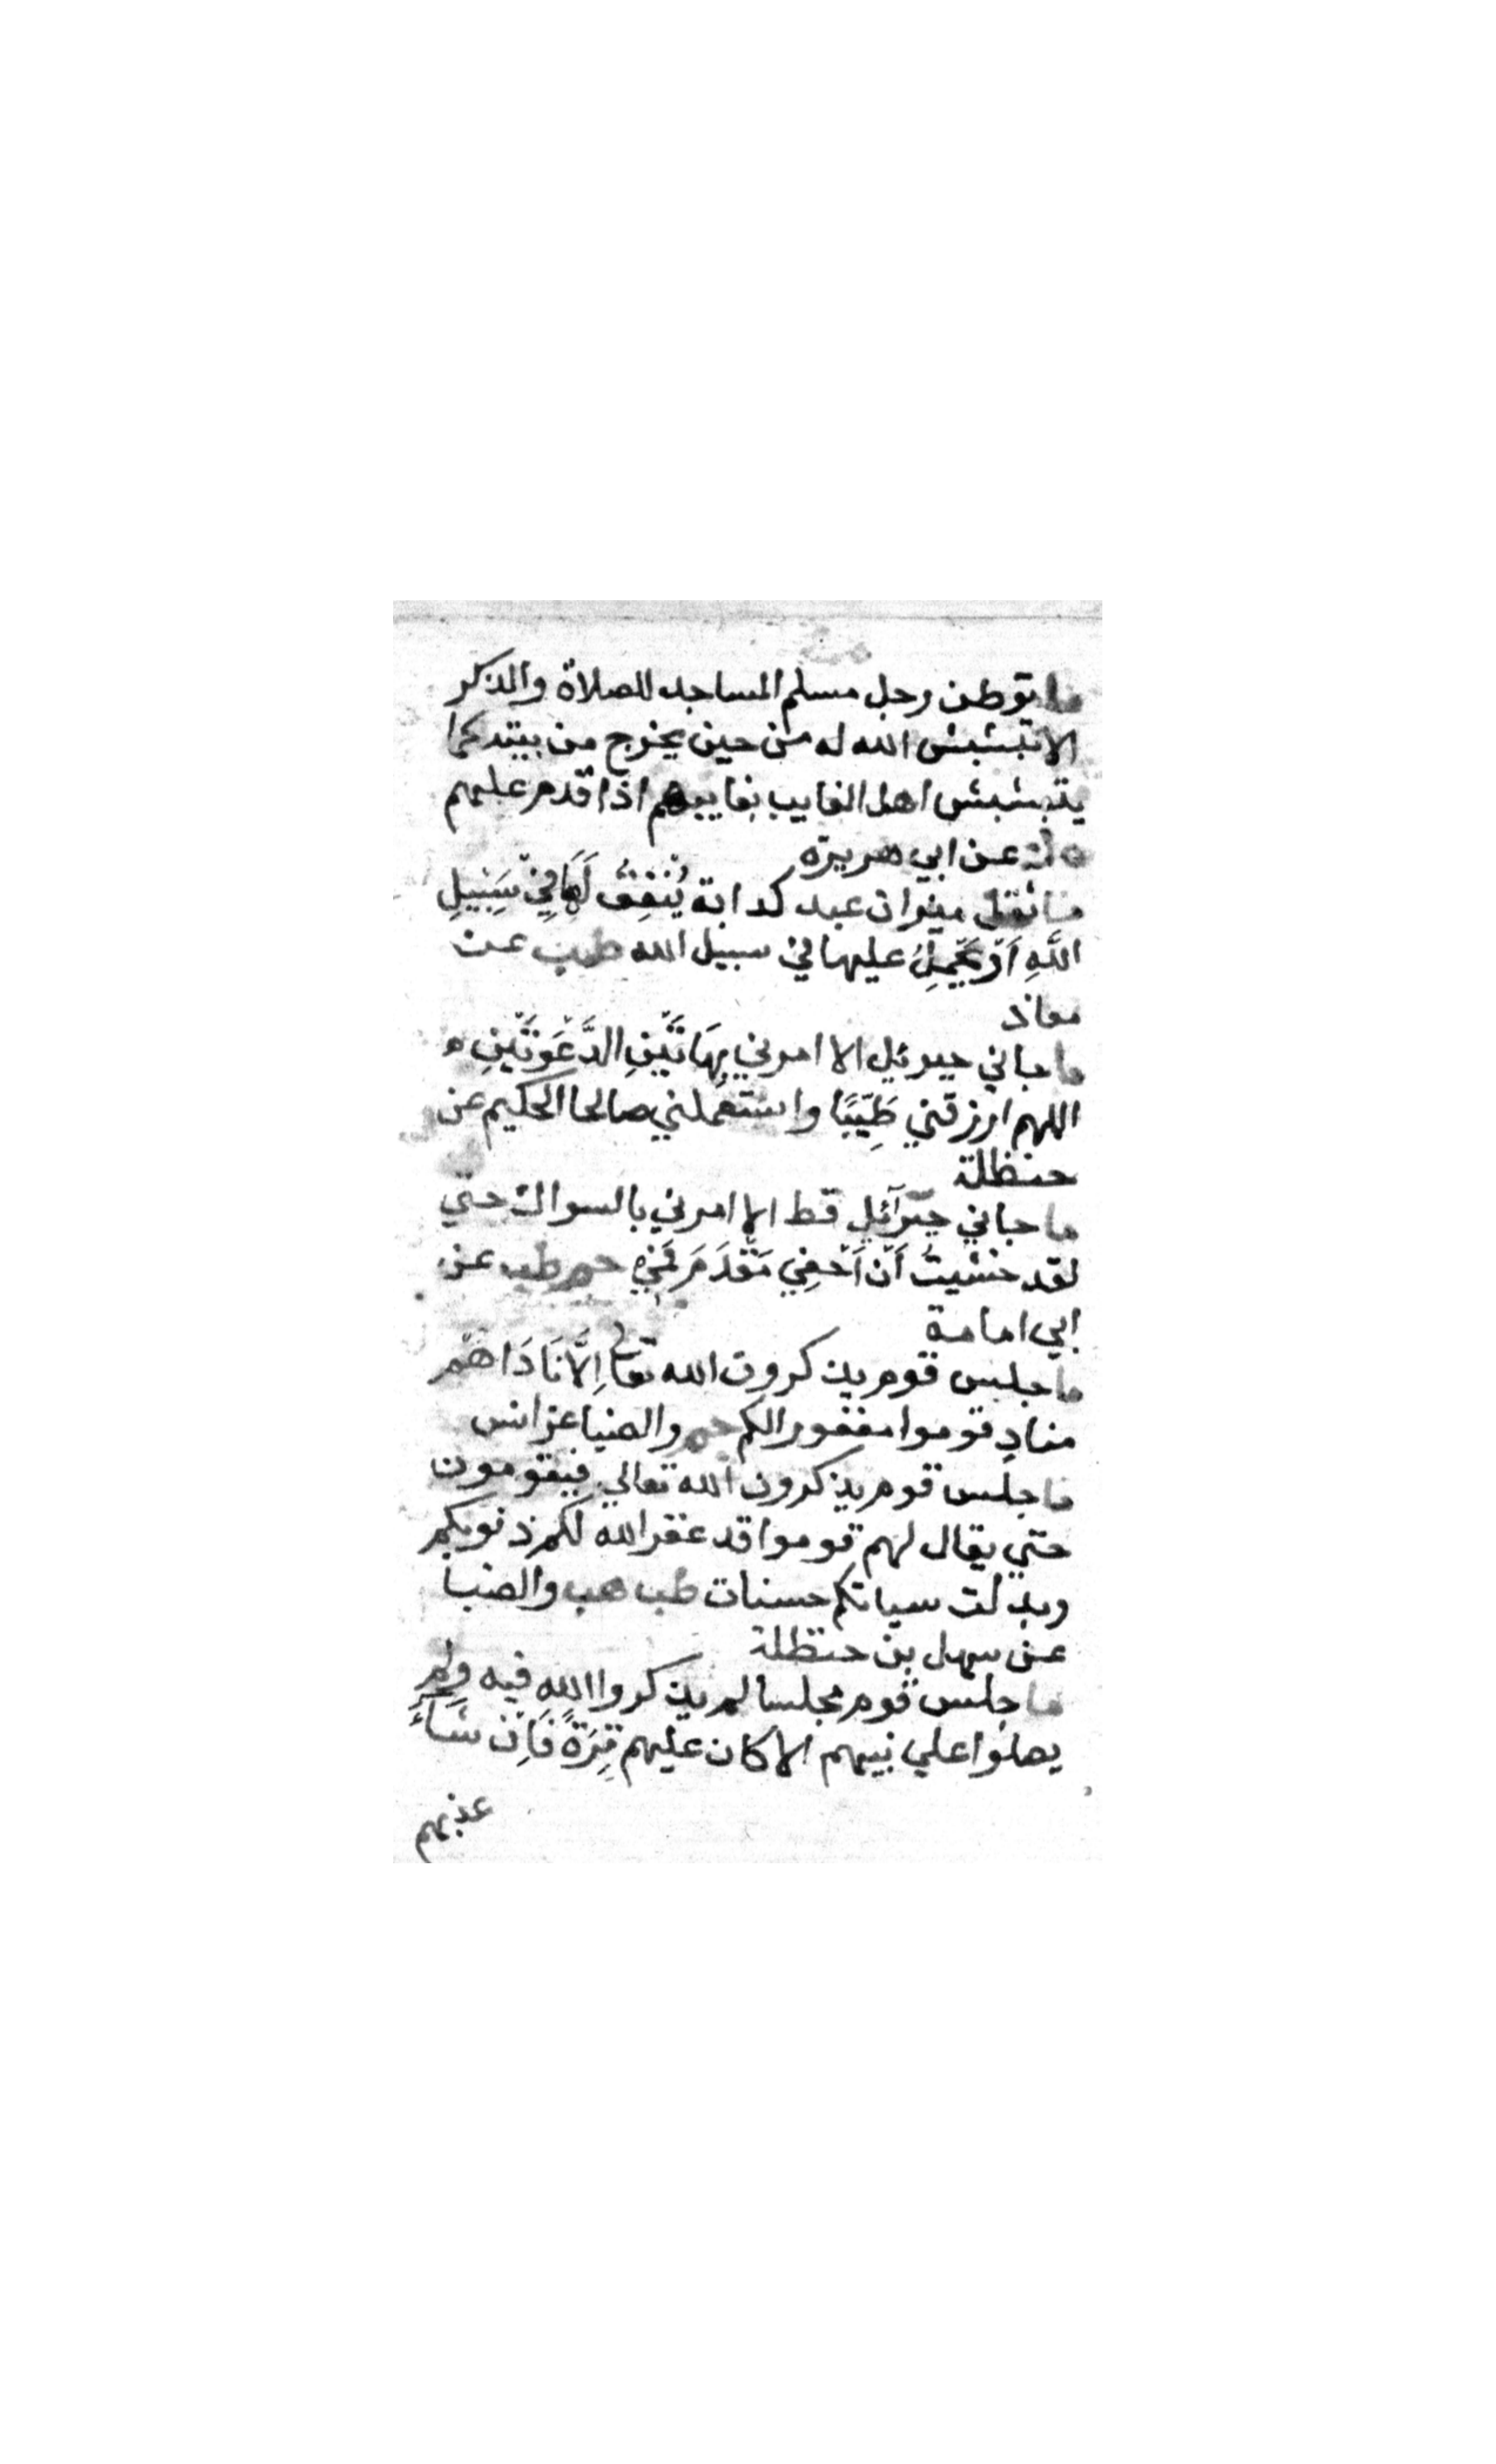 ما توطن رجل مسلم المساجد للصلاة والذكر
الا تبشبش الله له من حين يخرج من بيته كما
يتبشبش اهل الغايب بغايبهم اذا قدم عليهم
ه ك عن ابي هريرة
ما ثقل ميزان عبد كدابة يُنْفِقُ لَهَا فِيْ سَبِيلِ
اللَّهِ اَوْ يَحْمِلُ عليها في سبيل الله طب عن
معاذ
ما جاني جبرئيل الا امرني بِهَاتَيْنِ الدَّعْوَتَيْنِ ه
اللهم ارزقني طَيِّبًا واستعملني صالحا الحكيم عن
حنظلة
ما جاني جبرآئيل قط الا امرني بالسواك حتي
لقد خشيتُ اَنْ اُحْفِيَ مَقْدَمَ فَمِي حم طب عن
ابي امامة
ما جلس قوم يذكرون الله تعالى اِلَّا نَادَاهُمْ
منادٍ قوموا مغفورا لكم حم والضيا عن انس
ما جلس قوم يذكرون الله تعالي فيقومون
حتي يقال لهم قوموا قد غفر الله لكم ذنوبكم
وبدلت سياتكم حسنات طب هب والضيا
عن سهل بن حنظلة
ما جلس قوم مجلسا لم يذكروا الله فيه ولم
يصلوا علي نبيهم الا كان عليهم تِرَةً فَاِنْ شَاءَ
عذبهم